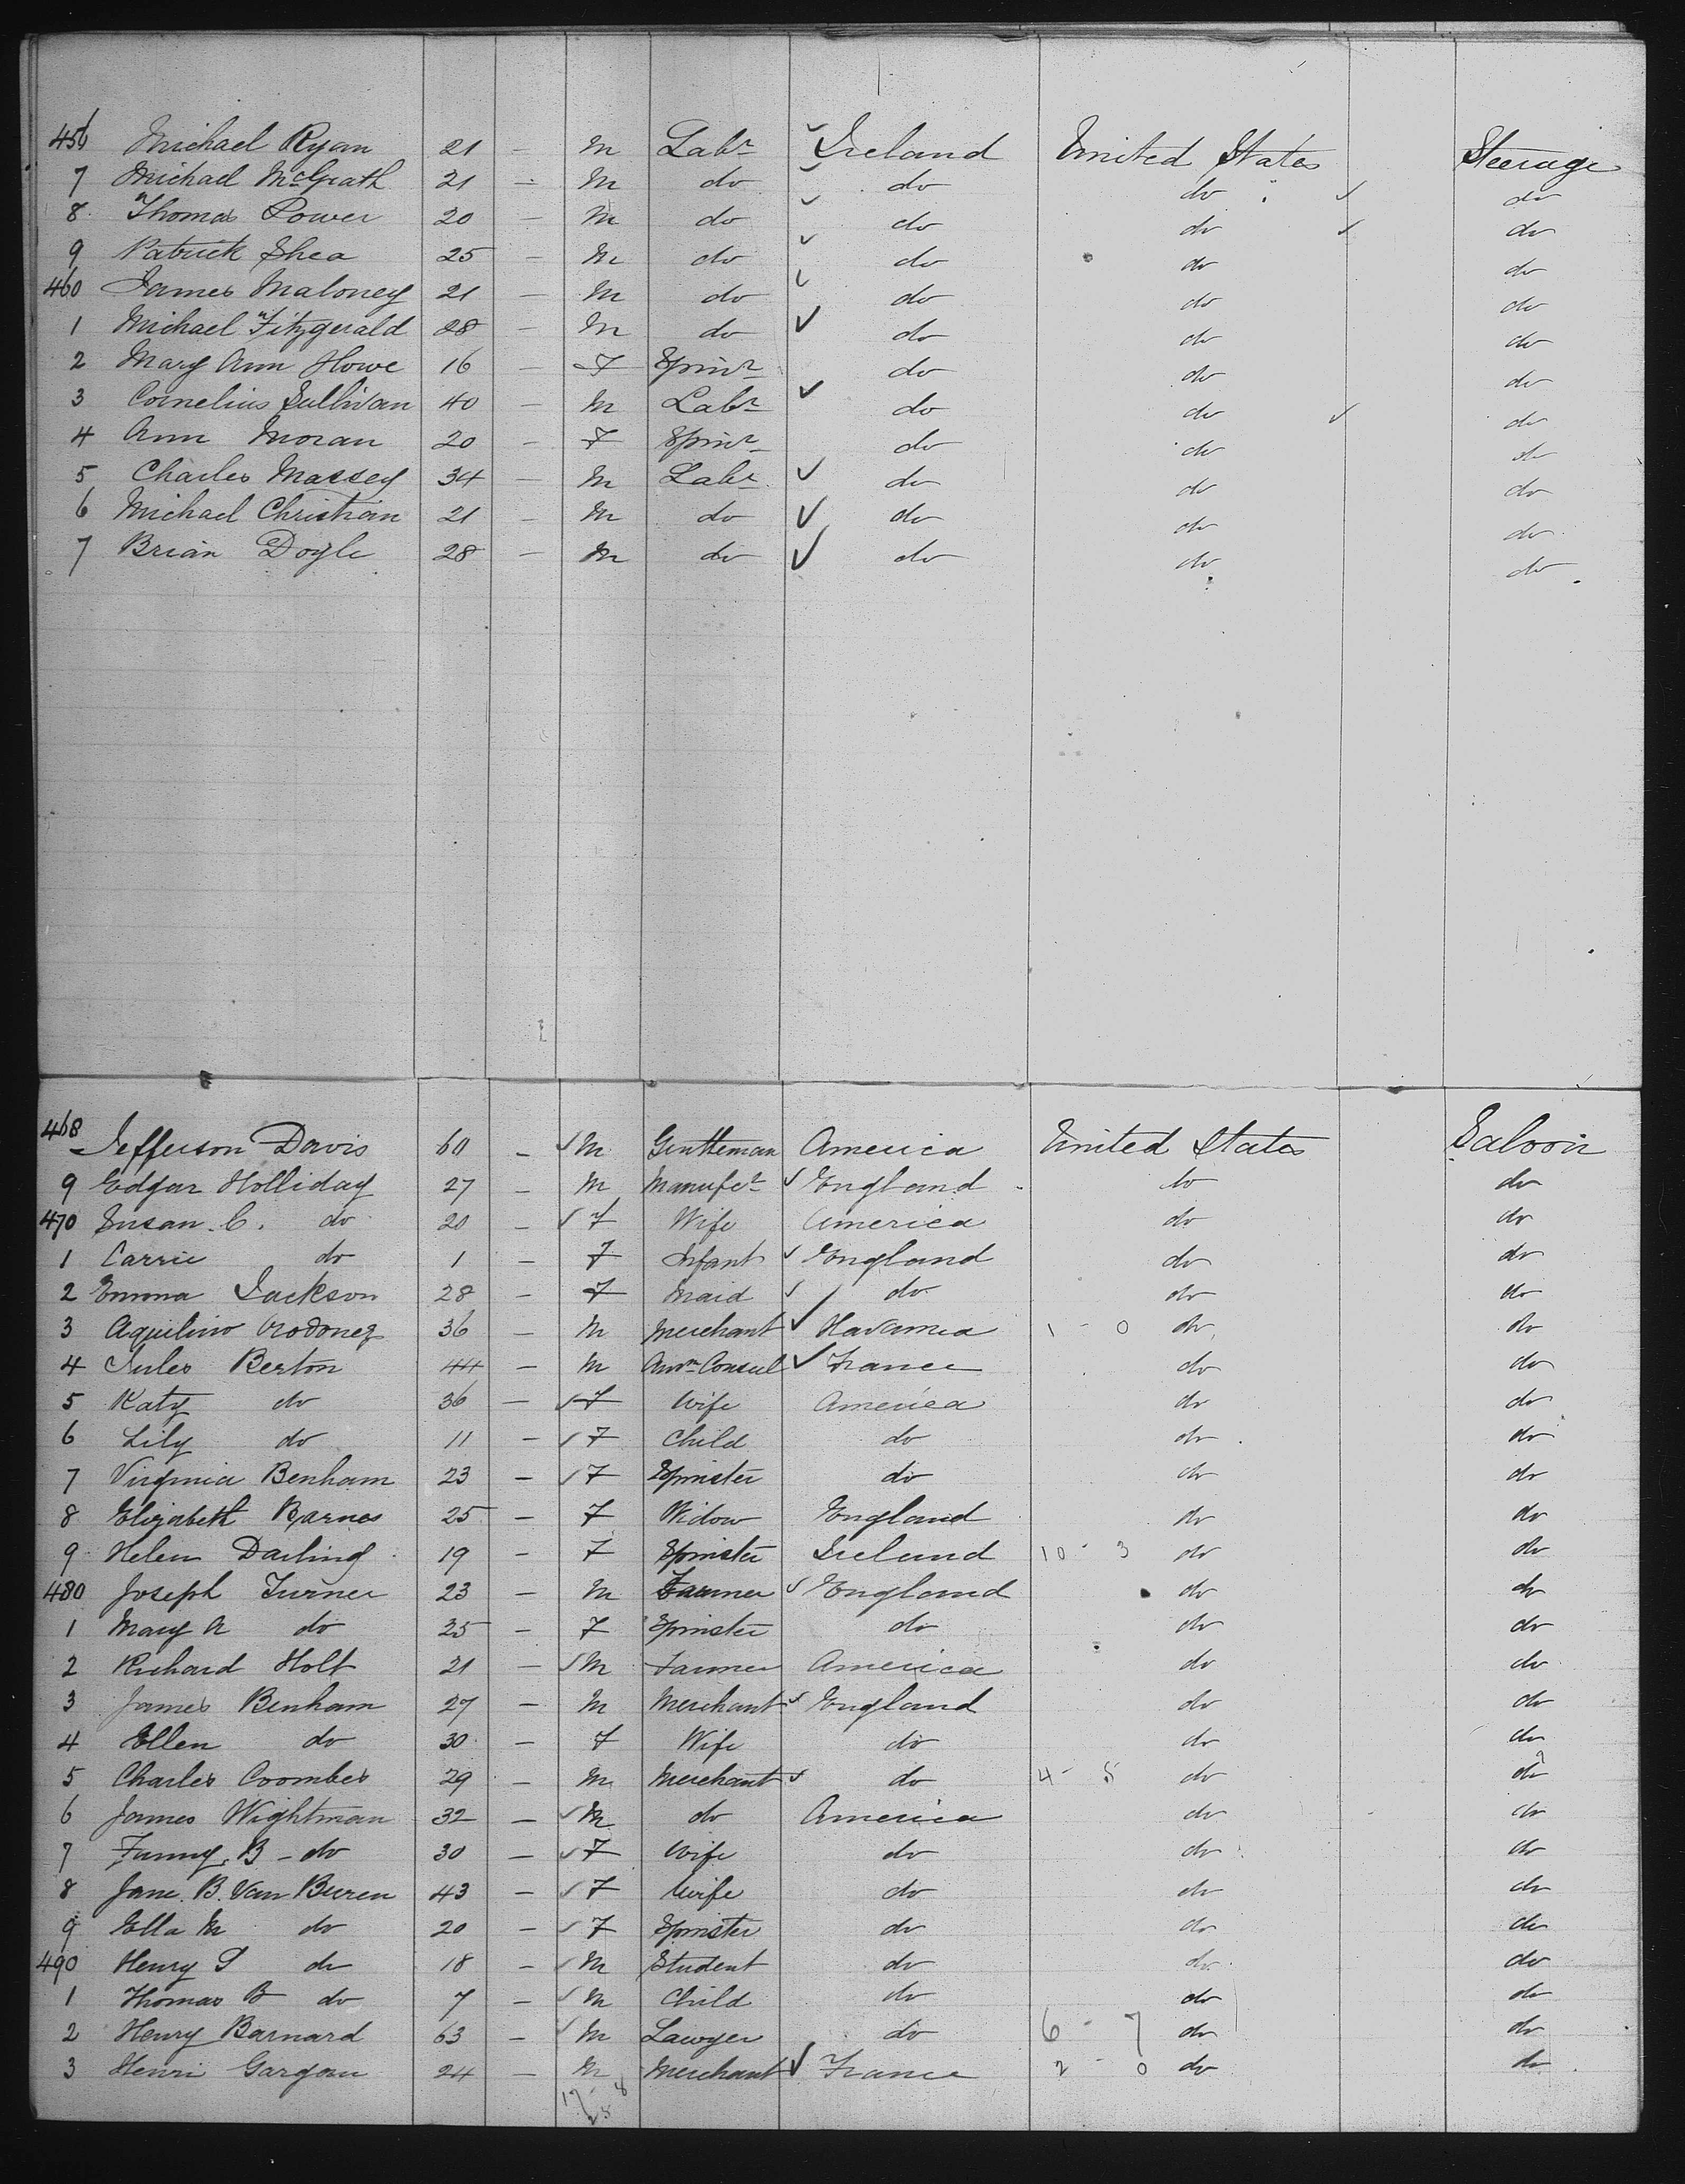 456 Michael Ryan 21 - M Labr Ireland United States Steerage
7 Michael McGrath 21 - M do do do do
8 Thomas Power 20 - M do do do do
9 Patrick Shea 25 - M do do do do
460 James Maloney 21 - M do do do do
1 Michael Fitzgerald 28 - M do do do do
2 Mary Ann Howe 16 - F Spinr do do do
3 Cornelius Sullivan 40 - M Labr do do do
4 Ann Moran 20 - F Spinr do do do
5 Charles Massey 34 - M Labr do do do
6 Michael Christian 21 - M do do do do
7 Brian Doyle 28 - M do do do do
468 Jefferson Davis 60 - M Gentleman America United States Saloon
9 Edgar Holliday 27 - M Manufcr England do do
470 Susan C. do 20 - F Wife America do do
1 Carrie do 1 - F Infant England do do
2 Emma Jackson 28 - F Maid do do do
3 Aquilino Ordonez 36 - M Merchant Havanna 1 - 0 do do
4 Jules Berton 44 - M Amn Consul France do do
5 Katy do 36 - F Wife America do do
6 Lily do 11 - F Child do do do
7 Virginia Benham 23 - F Spinster do do do
8 Elizabeth Barnes 25 - F Widow England do do
9 Helen Darling 19 - F Spinster Ireland 10 - 3 do do
480 Joseph Turner 23 - M Farmer England do do
1 Mary A do 25 - F Spinster do do do
2 Richard Holt 21 - M Farmer America do do
3 James Benham 27 - M Merchant England do do
4 Ellen do 30 - F Wife do do do
5 Charles Coombes 29 - M Merchant do 4 - 5 do do
6 James Wightman 32 - M do America do do
7 Fanny B - do 30 - F Wife do do do
8 Jane B. Van Buren 43 - F Wife do do do
9 Ella M do 20 - F Spinster do do do
490 Henry S do 18 - M Student do do do
1 Thomas B do 7 - M Child do do do
2 Henry Barnard 63 - M Lawyer do 6 - 7 do do
3 Henri Gargan 24 - M Merchant France 2 - 0 do do
17 - 8
25